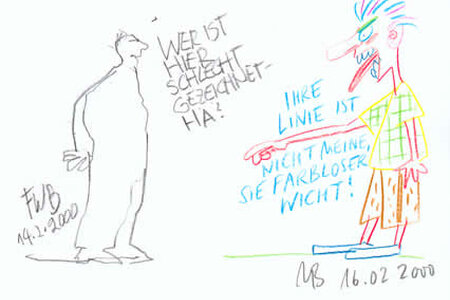 WER IST
HIER
SCHLECHT
GEZEICHNET-
HA!
FWB
14.2.2000
IHRE
LINIE IST
NICHT MEINE,
SIE FARBLOSER
WICHT!
MB 16.02 2000